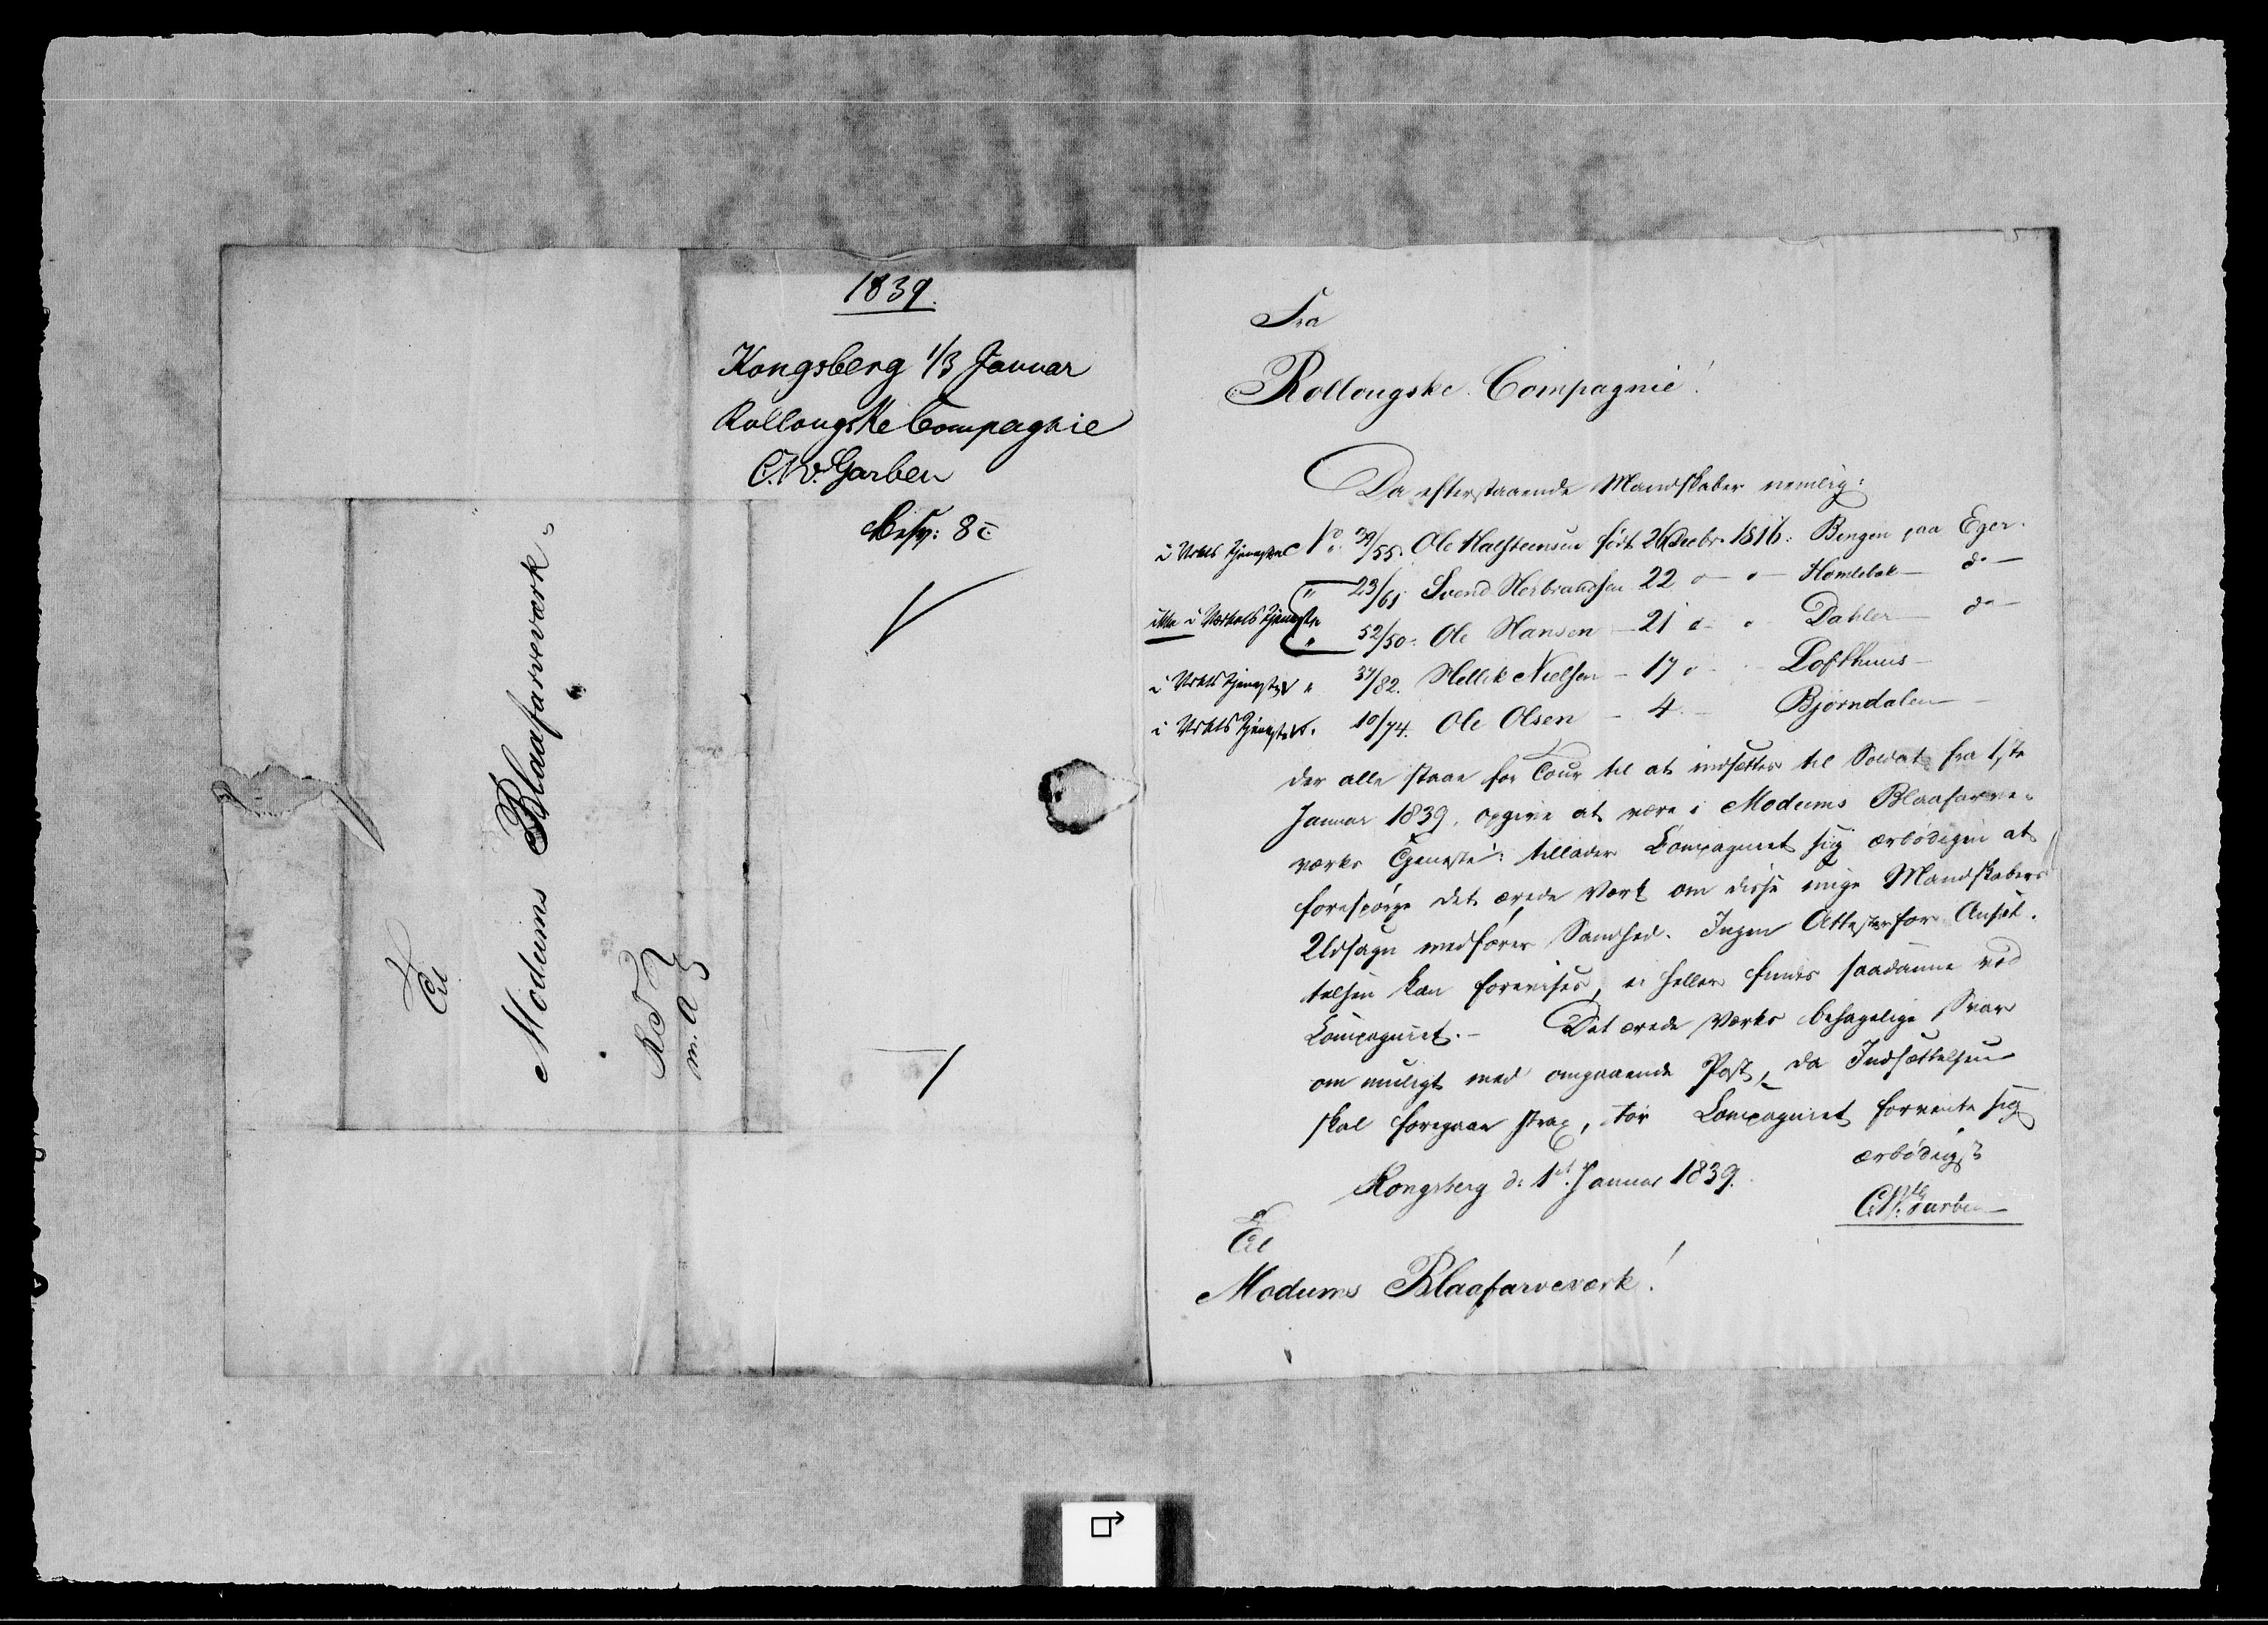 1839.
Kongsberg 1/3 Januar
Rollougske Compagnie
C.W. Garben
Besv: 8
Til
Modums Blaafarveværk
K.T.
m. a
Fra
Rollougske Compagnie!
Da efterstaaende Mandskaber nemlig:
i Vrkts Tjeneste No. 39/55. Ole Halsteensen født 26 Decbr. 1816: Bingen paa Eger.
" 23/61 Svend Herbrandsen 22 " " Homlebek - do -
ikke i Værkets Tjeneste " 52/50. Ole Hansen - 21 " " Dahler - do -
i Vrkts Tjeneste " 37/82. Hellik Nielsen - 17 " Lofthuus -
i Vrkts Tjeneste " 10/74. Ole Olsen - 4 - Bjørndalen -
der alle staae for Tour til at indsættes til Soldat fra 1ste
Januar 1839, opgive at være i Modums Blaafarve-
værks Tjeneste: tillader Compagniet sig ærbødigen at
forespørge det ærede Værk om disse unge Mandskabers
Udsagn medfører Sandhed. Ingen Attester for Ansæt-
telsen kan forevises, ei heller findes saadanne ved
Compagniet. - Det ærede Værks behagelige Svar
om muligt med omgaaende Post, da Indsættelsen
skal foregaae strax, tør Compagniet forvente sig
ærbødigst
Kongsberg d: 1st Januar 1839.
C.W. Garben
Til
Modums Blaafarveværk!